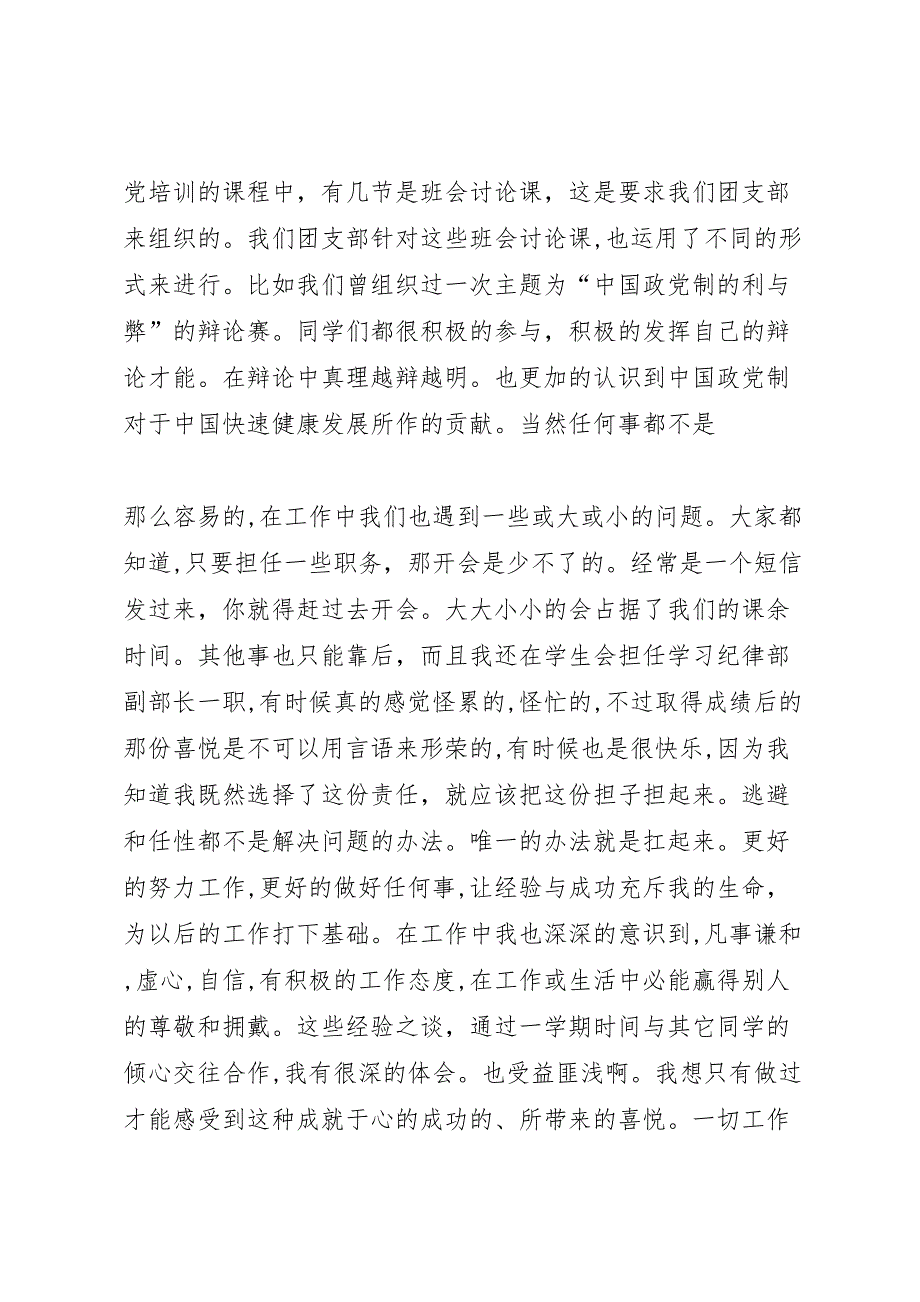 党培训的课程中，有几节是班会讨论课，这是要求我们团支部
来组织的。我们团支部针对这些班会讨论课,也运用了不同的形
式来进行。比如我们曾组织过一次主题为“中国政党制的利与
弊”的辩论赛。同学们都很积极的参与，积极的发挥自己的辩
论才能。在辩论中真理越辩越明。也更加的认识到中国政党制
对于中国快速健康发展所作的贡献。当然任何事都不是
那么容易的,在工作中我们也遇到一些或大或小的问题。大家都
知道,只要担任一些职务，那开会是少不了的。经常是一个短信
发过来，你就得赶过去开会。大大小小的会占据了我们的课余
时间。其他事也只能靠后，而且我还在学生会担任学习纪律部
副部长一职,有时候真的感觉怪累的,怪忙的,不过取得成绩后的
那份喜悦是不可以用言语来形荣的,有时候也是很快乐,因为我
知道我既然选择了这份责任，就应该把这份担子担起来。逃避
和任性都不是解决问题的办法。唯一的办法就是扛起来。更好
的努力工作,更好的做好任何事,让经验与成功充斥我的生命，
为以后的工作打下基础。在工作中我也深深的意识到,凡事谦和
,虚心,自信,有积极的工作态度,在工作或生活中必能赢得别人
的尊敬和拥戴。这些经验之谈，通过一学期时间与其它同学的
倾心交往合作,我有很深的体会。也受益匪浅啊。我想只有做过
才能感受到这种成就于心的成功的、所带来的喜悦。一切工作